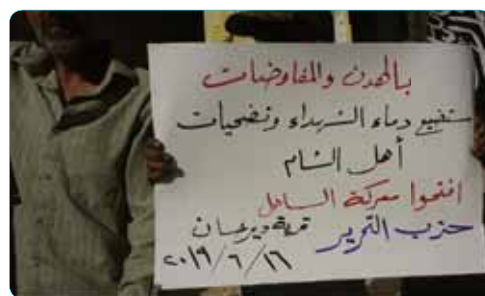 بالهدن والمفاوضات
ستضيع دماء الشهداء وتضحيات
أهل الشام
افتحوا معركة الساحل
حزب التحرير
٢٠١٩/٦/١٦